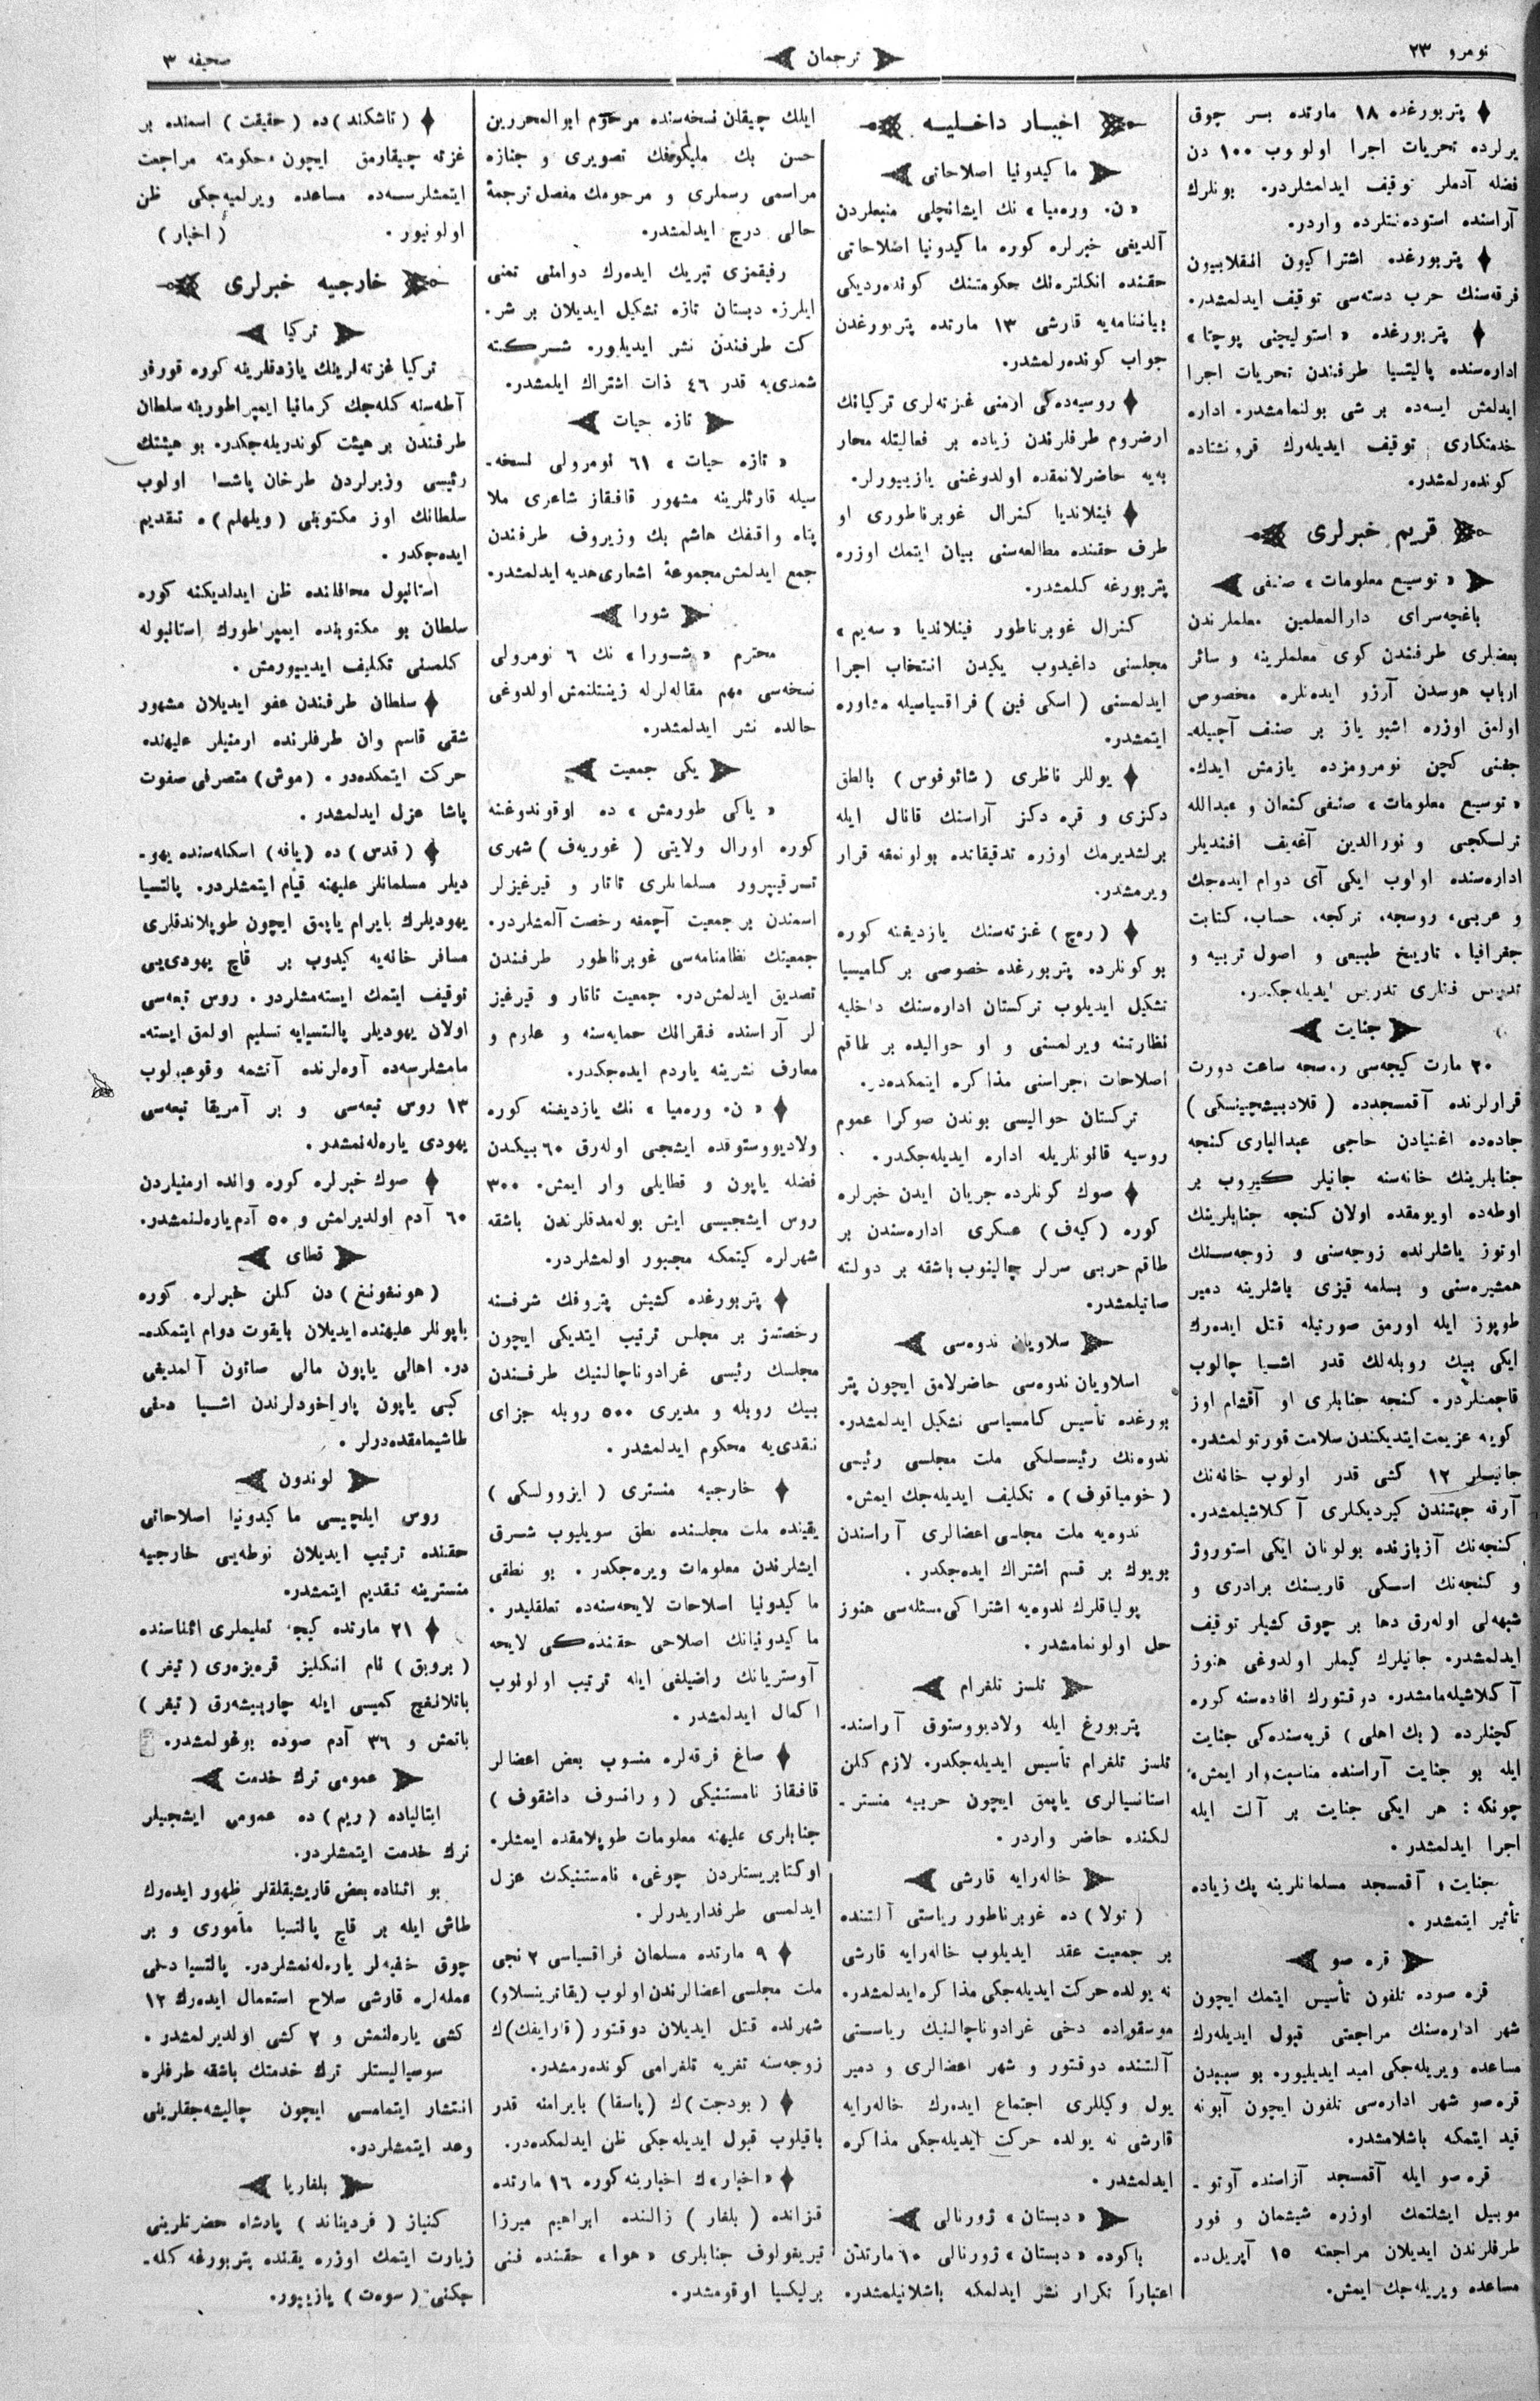 نومرو ٢٣
ترجمان
صحیفه ٣
پتربورغده ١٨ مارتده بسر چوق
یرلرده تحریات اجرا اولنوب ١٠٠ دن
فضله آدملر توقیف ایدلمشلردر. بونلرك
آراسنده استوده‌نتلرده واردر.
پتربورغده اشتراکیون انقلابیون
فرقه‌سنك حرب دسته‌سی توقیف ایدلمشدر.
پتربورغده «استولیچنی پوچتا»
اداره‌سنده پالیتسیا طرفندن تحریات اجرا
ایدلمش ایسه‌ده بر شی بولنمامشدر. اداره
خدمتکاری توقیف ایدیله‌رك قرونشتاده
کوندرلمشدر.
قریم خبرلری
«توسیع معلومات» صنفی
باغچه‌سرای دارالمعلمین معلملرندن
بعضلری طرفندن کوی معلملرینه و سائر
ارباب هوسدن آرزو ایده‌نلره مخصوص
اولمق اوزره اشبو یاز بر صنف آچیله‌-
جغنی کچن نومرومزده یازمش ایدك.
«توسیع معلومات» صنفی کنعان و عبدالله
ترلسکجی و نورالدین آغه‌یف افندیلر
اداره‌سنده اولوب ایکی آی دوام ایده‌جك
و عربی، روسجه، ترکجه، حساب، کتابت
جغرافیا، تاریخ طبیعی و اصول تربیه و
تدریس فنلری تدریس ایدیله‌جکدر.
جنایت
٢٠ مارت کیجه‌سی روسجه ساعت دورت
قرارلرنده آقمسجدده (قلادبیشچینسکی)
جاده‌ده اغنیادن حاجی عبدالباری کنجه
جنابلرینك خانه‌سنه جانیلر کیروب بر
اوطه‌ده اویومقده اولان کنجه جنابلرینك
اوتوز یاشلرنده زوجه‌سنی و زوجه‌سنك
همشیره‌سنی و بسلمه قیزی باشلرینه دمیر
طوپوز ایله اورمق صورتیله قتل ایده‌رك
ایکی بیك روبله‌لك قدر اشیا چالوب
قاچمشلردر. کنجه جنابلری او آقشام اوز
کویه عزیمت ایتدیکندن سلامت قورتولمشدر.
جانیلر ١٢ کشی قدر اولوب خانه‌نك
آرقه جهتندن کیردیکلری آکلاشیلمشدر.
کنجه‌نك آزبازنده بولونان ایکی استوروژ
و کنجه‌نك اسکی قاریسنك برادری و
شبهه‌لی اوله‌رق دها بر چوق کشیلر توقیف
ایدلمشدر. جانیلرك کیملر اولدوغی هنوز
آکلاشیله‌مامشدر. دوقتورك افاده‌سنه کوره
کچنلرده (بك اهلی) قریه‌سنده‌کی جنایت
ایله بو جنایت آراسنده مناسبت وار ایمش،
چونکه: هر ایکی جنایت بر آلت ایله
اجرا ایدلمشدر.
جنایت، آقمسجد مسلمانلرینه پك زیاده
تأثیر ایتمشدر.
قره صو
قره صوده تلفون تأسیس ایتمك ایچون
شهر اداره‌سنك مراجعتی قبول ایدیله‌رك
مساعده ویریله‌جکی امید ایدیلیور. بو سببدن
قره‌صو شهر اداره‌سی تلفون ایچون آبونه
قید ایتمکه باشلامشدر.
قره‌صو ایله آقمسجد آراسنده آوتو-
موبیل ایشلتمك اوزره شیشمان و فور
طرفلرندن ایدیلان مراجعته ١٥ آپریل‌ده
مساعده ویریله‌جك ایمش.
اخبار داخلیه
ماکیدونیا اصلاحاتی
«ن. وره‌میا» نك ایشانچلی منبعلردن
آلدیغی خبرلره کوره ماکیدونیا اصلاحاتی
حقنده انکلتره‌نك حکومتنك کونده‌ردیکی
بیاننامه‌یه قارشی ١٣ مارتده پتربورغدن
جواب کونده‌رلمشدر.
روسیه‌ده‌کی ارمنی غزته‌لری ترکیانك
ارضروم طرفلرندن زیاده بر فعالیتله محار
به‌یه حاضرلانمقده اولدوغنی یازییورلر.
فینلاندیا کنرال غوبرناطوری او
طرف حقنده مطالعه‌سنی بیان ایتمك اوزره
پتربورغه کلمشدر.
کنرال غوبرناطور فینلاندیا «سه‌یم»
مجلسنی داغیدوب یکیدن انتخاب اجرا
ایدلمسنی (اسکی فین) فراقسیاسیله مشاوره
ایتمشدر.
یوللر ناظری (شائوفوس) بالطق
دکزی و قره دکز آراسنك قانال ایله
برلشدیرمك اوزره تدقیقاتده بولونمغه قرار
ویرمشدر.
(ره‌چ) غزته‌سنك یازدیغنه کوره
بو کونلرده پتربورغده خصوصی بر کامیسیا
تشکیل ایدیلوب ترکستان اداره‌سنك داخلیه
نظارتینه ویرلمسنی و او حوالیده بر طاقم
اصلاحات اجراسنی مذاکره ایتمکده‌در.
ترکستان حوالیسی بوندن صوکرا عموم
روسیه قانونلریله اداره ایدیله‌جکدر.
صوك کونلرده جریان ایدن خبرلره
کوره (کیه‌ف) عسکری اداره‌سندن بر
طاقم حربی سرلر چالینوب باشقه بر دولته
صاتیلمشدر.
سلاویان ندوه‌سی
اسلاویان ندوه‌سی حاضرلامق ایچون پتر
بورغده تأسیس کامسیاسی تشکیل ایدلمشدر.
ندوه‌نك رئیسلکی ملت مجلسی رئیسی
(خومیاقوف) ه تکلیف ایدیله‌جك ایمش.
ندوه‌یه ملت مجلسی اعضالری آراسندن
بویوك بر قسم اشتراك ایده‌جکدر.
پولیاقلرك ندوه‌یه اشتراکی مسئله‌سی هنوز
حل اولونمامشدر.
تلسز تلفرام
پتربورغ ایله ولادیووستوق آراسند.
تلسز تلفرام تأسیس ایدیله‌جکدر. لازم کلن
استانسیالری یاپمق ایچون حربیه منستر-
لکنده حاضر واردر.
خاله‌رایه قارشی
(تولا) ده غوبرناطور ریاستی آلتنده
بر جمعیت عقد ایدیلوب خاله‌رایه قارشی
نه یولده حرکت ایدیله‌جکی مذاکره ایدلمشدر.
موسقواده دخی غرادوناچالنیك ریاستی
آلتنده دوقتور و شهر اعضالری و دمیر
یول وکیللری اجتماع ایده‌رك خاله‌رایه
قارشی نه یولده حرکت ایدیله‌جکی مذاکره
ایدلمشدر.
«دبستان» ژورنالی
باکوده «دبستان» ژورنالی ١٠ مارتدن
اعتباراً تکرار نشر ایدلمکه باشلانیلمشدر.
ایلك چیقلن نسخه‌سنده مرحوم ابوالمحررین
حسن بك ملیکوفك تصویری و جنازه
مراسمی رسملری و مرحومك مفصل ترجمۀ
حالی درج ایدلمشدر.
رفیقمزی تبریك ایده‌رك دوامنی تمنی
ایلرز. دبستان تازه تشکیل ایدیلان بر شر.
کت طرفندن نشر ایدیلور. شرکته
شمدی‌یه قدر ٤٦ ذات اشتراك ایلمشدر.
تازه حیات
«تازه حیات» ٦١ نومرولی نسخه-
سیله قارئلرینه مشهور قافقاز شاعری ملا
پناه واقفك هاشم بك وزیروف طرفندن
جمع ایدلمش مجموعۀ اشعاری هدیه ایدلمشدر.
شورا
محترم «شورا» نك ٦ نومرولی
نسخه‌سی مهم مقاله‌لرله زینتلنمش اولدوغی
حالده نشر ایدلمشدر.
یکی جمعیت
«یاکی طورمش» ده اوقوندوغنه
کوره اورال ولایتی (غوریه‌ف) شهری
تسرقیپرور مسلمانلری تاتار و قیرغیزلر
اسمندن بر جمعیت آچمغه رخصت آلمشلردر.
جمعیتك نظامنامه‌سی غوبرناطور طرفندن
تصدیق ایدلمش‌در. جمعیت تاتار و قیرغیز
لر آراسنده فقرانك حمایه‌سنه و علوم و
معارف نشرینه یاردم ایده‌جکدر.
«ن. وره‌میا» نك یازدیغنه کوره
ولادیووستوقده ایشجی اوله‌رق ٦٠ بیکدن
فضله یاپون و قطایلی وار ایمش. ٣٠٠
روس ایشجیسی ایش بوله‌مدقلرندن باشقه
شهرلره کیتمکه مجبور اولمشلردر.
پتربورغده کشیش پتروفك شرفنه
رخصتسز بر مجلس ترتیب ایتدیکی ایچون
مجلسك رئیسی غرادوناچالنیك طرفندن
بیك روبله و مدیری ٥٠٠ روبله جزای
نقدی‌یه محکوم ایدلمشدر.
خارجیه منستری (ایزوولسکی)
یقینده ملت مجلسنده نطق سویلیوب شرق
ایشلرندن معلومات ویره‌جکدر. بو نطقی
ماکیدونیا اصلاحات لایحه‌سنه‌ده تعلقلیدر.
ماکیدونیانك اصلاحی حقنده‌کی لایحه
آوستریانك راضیلغی ایله ترتیب اولونوب
اکمال ایدلمشدر.
صاغ فرقه‌لره منسوب بعض اعضالر
قافقاز نامستنیکی (ورانسوف داشقوف)
جنابلری علیهنه معلومات طوپلامقده ایمشلر.
اوکتابریستلردن چوغی، نامستنیکك عزل
ایدلمسی طرفداریدرلر.
٩ مارتده مسلمان فراقسیاسی ٢ نجی
ملت مجلسی اعضالرندن اولوب (یقاترینسلاو)
شهرنده قتل ایدیلان دوقتور (قارایفك)ك
زوجه‌سنه تعزیه تلفرامی کونده‌رمشدر.
(بودجت)ك (پاسقا) بایرامنه قدر
باقیلوب قبول ایدیله‌جکی ظن ایدلمکده‌در.
«اخبار»ك اخبارینه کوره ١٦ مارتده
قزانده (بلغار) زالنده ابراهیم میرزا
تیریغولوف جنابلری «هوا» حقنده فنی
بر لیکسیا اوقومشدر.
(تاشکند)ده (حقیقت) اسمنده بر
غزته چیقارمق ایچون حکومته مراجعت
ایتمشلرسه‌ده مساعده ویرلمیه‌جکی ظن
اولونیور. (اخبار)
خارجیه خبرلری
ترکیا
ترکیا غزته‌لرینك یازدقلرینه کوره قورفو
آطه‌سنه کله‌جك کرمانیا ایمپراطورینه سلطان
طرفندن بر هیئت کوندریله‌جکدر. بو هیئتك
رئیسی وزیرلردن طرخان پاشا اولوب
سلطانك اوز مکتوبنی (ویلهلم)ه تقدیم
ایده‌جکدر.
استانبول محافلنده ظن ایدلدیکنه کوره
سلطان بو مکتوبنده ایمپراطورك استانبوله
کلمسنی تکلیف ایدییورمش.
سلطان طرفندن عفو ایدیلان مشهور
شقی قاسم وان طرفلرنده ارمنیلر علیهنده
حرکت ایتمکده‌در. (موش) متصرفی صفوت
پاشا عزل ایدلمشدر.
(قدس)ده (یافه) اسکله‌سنده یهو-
دیلر مسلمانلر علیهنه قیام ایتمشلردر. پالتسیا
یهودیلرك بایرام یاپمق ایچون طوپلاندقلری
مسافر خانه‌یه کیدوب بر قاچ یهودی‌یی
توقیف ایتمك ایسته‌مشلردر. روس تبعه‌سی
اولان یهودیلر پالتسیایه تسلیم اولمق ایسته-
مامشلرسه‌ده آوه‌لرنده آتشمه وقوعبولوب
١٣ روس تبعه‌سی و بر آمریقا تبعه‌سی
یهودی یاره‌له‌نمشدر.
صوك خبرلره کوره وانده ارمنیلردن
٦٠ آدم اولدیرلمش و ٥٠ آدم یاره‌لنمشدر.
قطای
(هونغونغ)دن کلن خبرلره کوره
یاپونلر علیهنده ایدیلان بایقوت دوام ایتمکده-
در. اهالی یاپون مالی صاتون آلمدیغی
کبی یاپون پاراخودلرندن اشیا دخی
طاشیمامقده‌درلر.
لوندون
روس ایلچیسی ماکیدونیا اصلاحاتی
حقنده ترتیب ایدیلان نوطه‌یی خارجیه
منسترینه تقدیم ایتمشدر.
٢١ مارتده کیجه تعلیملری اثناسنده
(برویق) نام انکلیز قره‌یزه‌ری (تیغر)
باتلانغچ کمیسی ایله چارپیشه‌رق (تیغر)
باتمش و ٣٦ آدم صوده بوغولمشدر.
عمومی ترك خدمت
ایتالیاده (ریم) ده عمومی ایشجیلر
ترك خدمت ایتمشلردر.
بو اثناده بعض قاریشیقلقلر ظهور ایده‌رك
طاش ایله بر قاچ پالتسیا مأموری و بر
چوق خفیه‌لر یاره‌له‌نمشلردر. پالتسیا دخی
عمله‌لره قارشی سلاح استعمال ایده‌رك ١٢
کشی یاره‌لنمش و ٢ کشی اولدیرلمشدر.
سوسیالیستلر ترك خدمتك باشقه طرفلره
انتشار ایتمامسی ایچون چالیشه‌جقلرینی
وعد ایتمشلردر.
بلغاریا
کنیاز (فردیناند) پادشاه حضرتلرینی
زیارت ایتمك اوزره یقینده پتربورغه کله-
جکنی (سوه‌ت) یازییور.